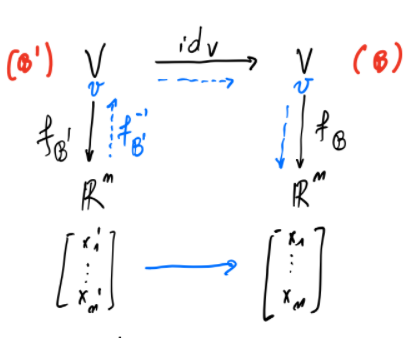 (B') V id_V V (B)
v v
f_B' f_B'^-1 f_B
ℝ^n ℝ^n
[x_1' ⋮ x_n'] [x_1 ⋮ x_n]